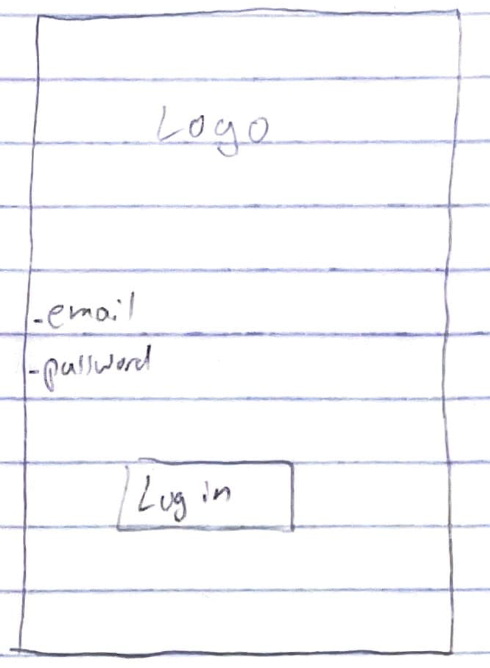 Logo
-email
-password
Log in